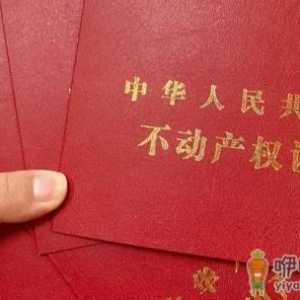 中华人民共
不动产权证
收
咿
yiya